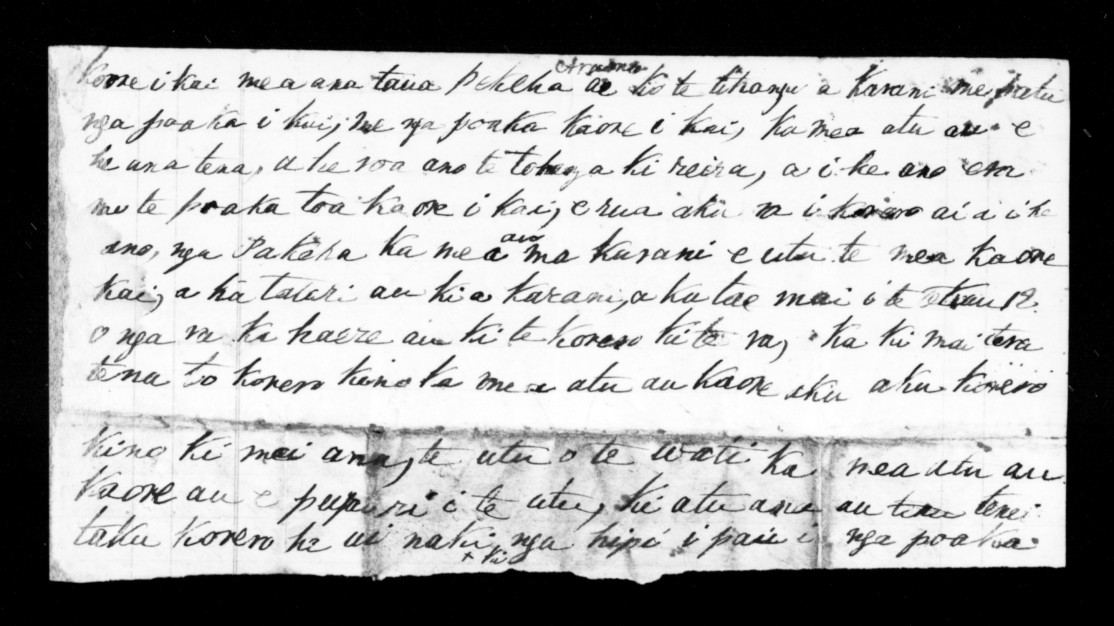 kaore i kai mea ana taua Pakeha ae ko te tikanga a Karani me patu
nga poaka i kai, me nga poaka kaore i kai, ka mea atu au e
he ana tena, a he roa ano te tohenga ki reira, a i he ano era
mo te poaka toa kaore i kai, e rua aku ra i korero ai a i he
ano, nga Pakeha ka mea au ma Karani e utu te mea kaore
kai, a ka tatari au ki a Karani, a ka tae mai i te 12.
o nga ra ka haere au ki te korero ki te ra, ka ki mai tera
tena to korero kino ka mea atu au kaore aku aku korero
kino ki mai ana, te utu o te wati ka mea atu au
kaore au e pupuri i te utu, ki atu ana au tena tenei
taku korero he ui naku ki nga hipi i pau i nga poaka